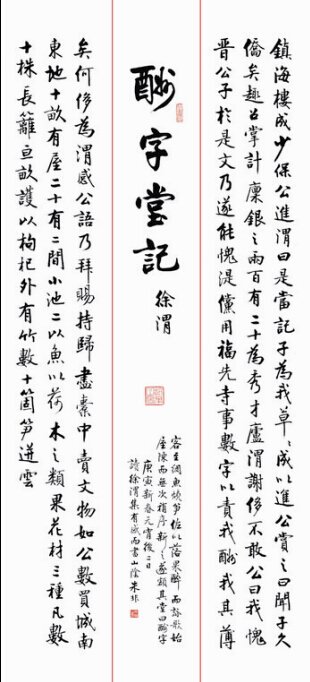 酬字堂記
徐渭
鎮海樓成少保公進渭曰是當記子為我草〻成以進公賞之曰聞子久
僑矣趣召掌計廩銀之兩百有二十為秀才廬渭謝侈不敢公曰我愧
晉公子於是文乃遂能愧湜儻用福先寺事數字以責我酬我其薄
矣何侈為渭感公語乃拜賜持歸盡橐中賣文物如公數買城南
東地十畝有屋二十有二間小池二以魚以荷木之類果花材三種凡數
十株長籬亙畝護以枸杞外有竹數十箇笋迸雲
客至網魚燒笋佐以落果醉而詠歌始
屋陳而無次稍序新之遂額其堂曰酬字
庚寅新春元宵後二日
讀徐渭集有感而書山陰朱非